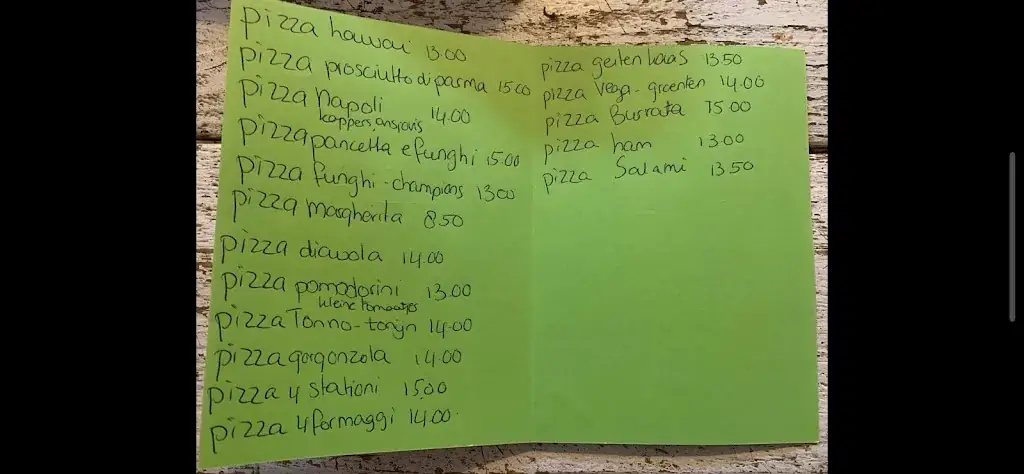 pizza hawai 13.00
pizza prosciutto di parma 15.00
pizza Napoli 14.00
kappers, ansjovis
pizza pancetta e funghi 15.00
pizza funghi-champions 13.00
pizza margherita 8.50
pizza diavola 14.00
pizza pomodorini 13.00
kleine tomaatjes
pizza Tonno-tonijn 14.00
pizza gorgonzola 14.00
pizza 4 stationi 15.00
pizza 4 formaggi 14.00
pizza geitenkaas 13.50
pizza Vega-groenten 14.00
pizza Burrata 15.00
pizza ham 13.00
pizza Salami 13.50